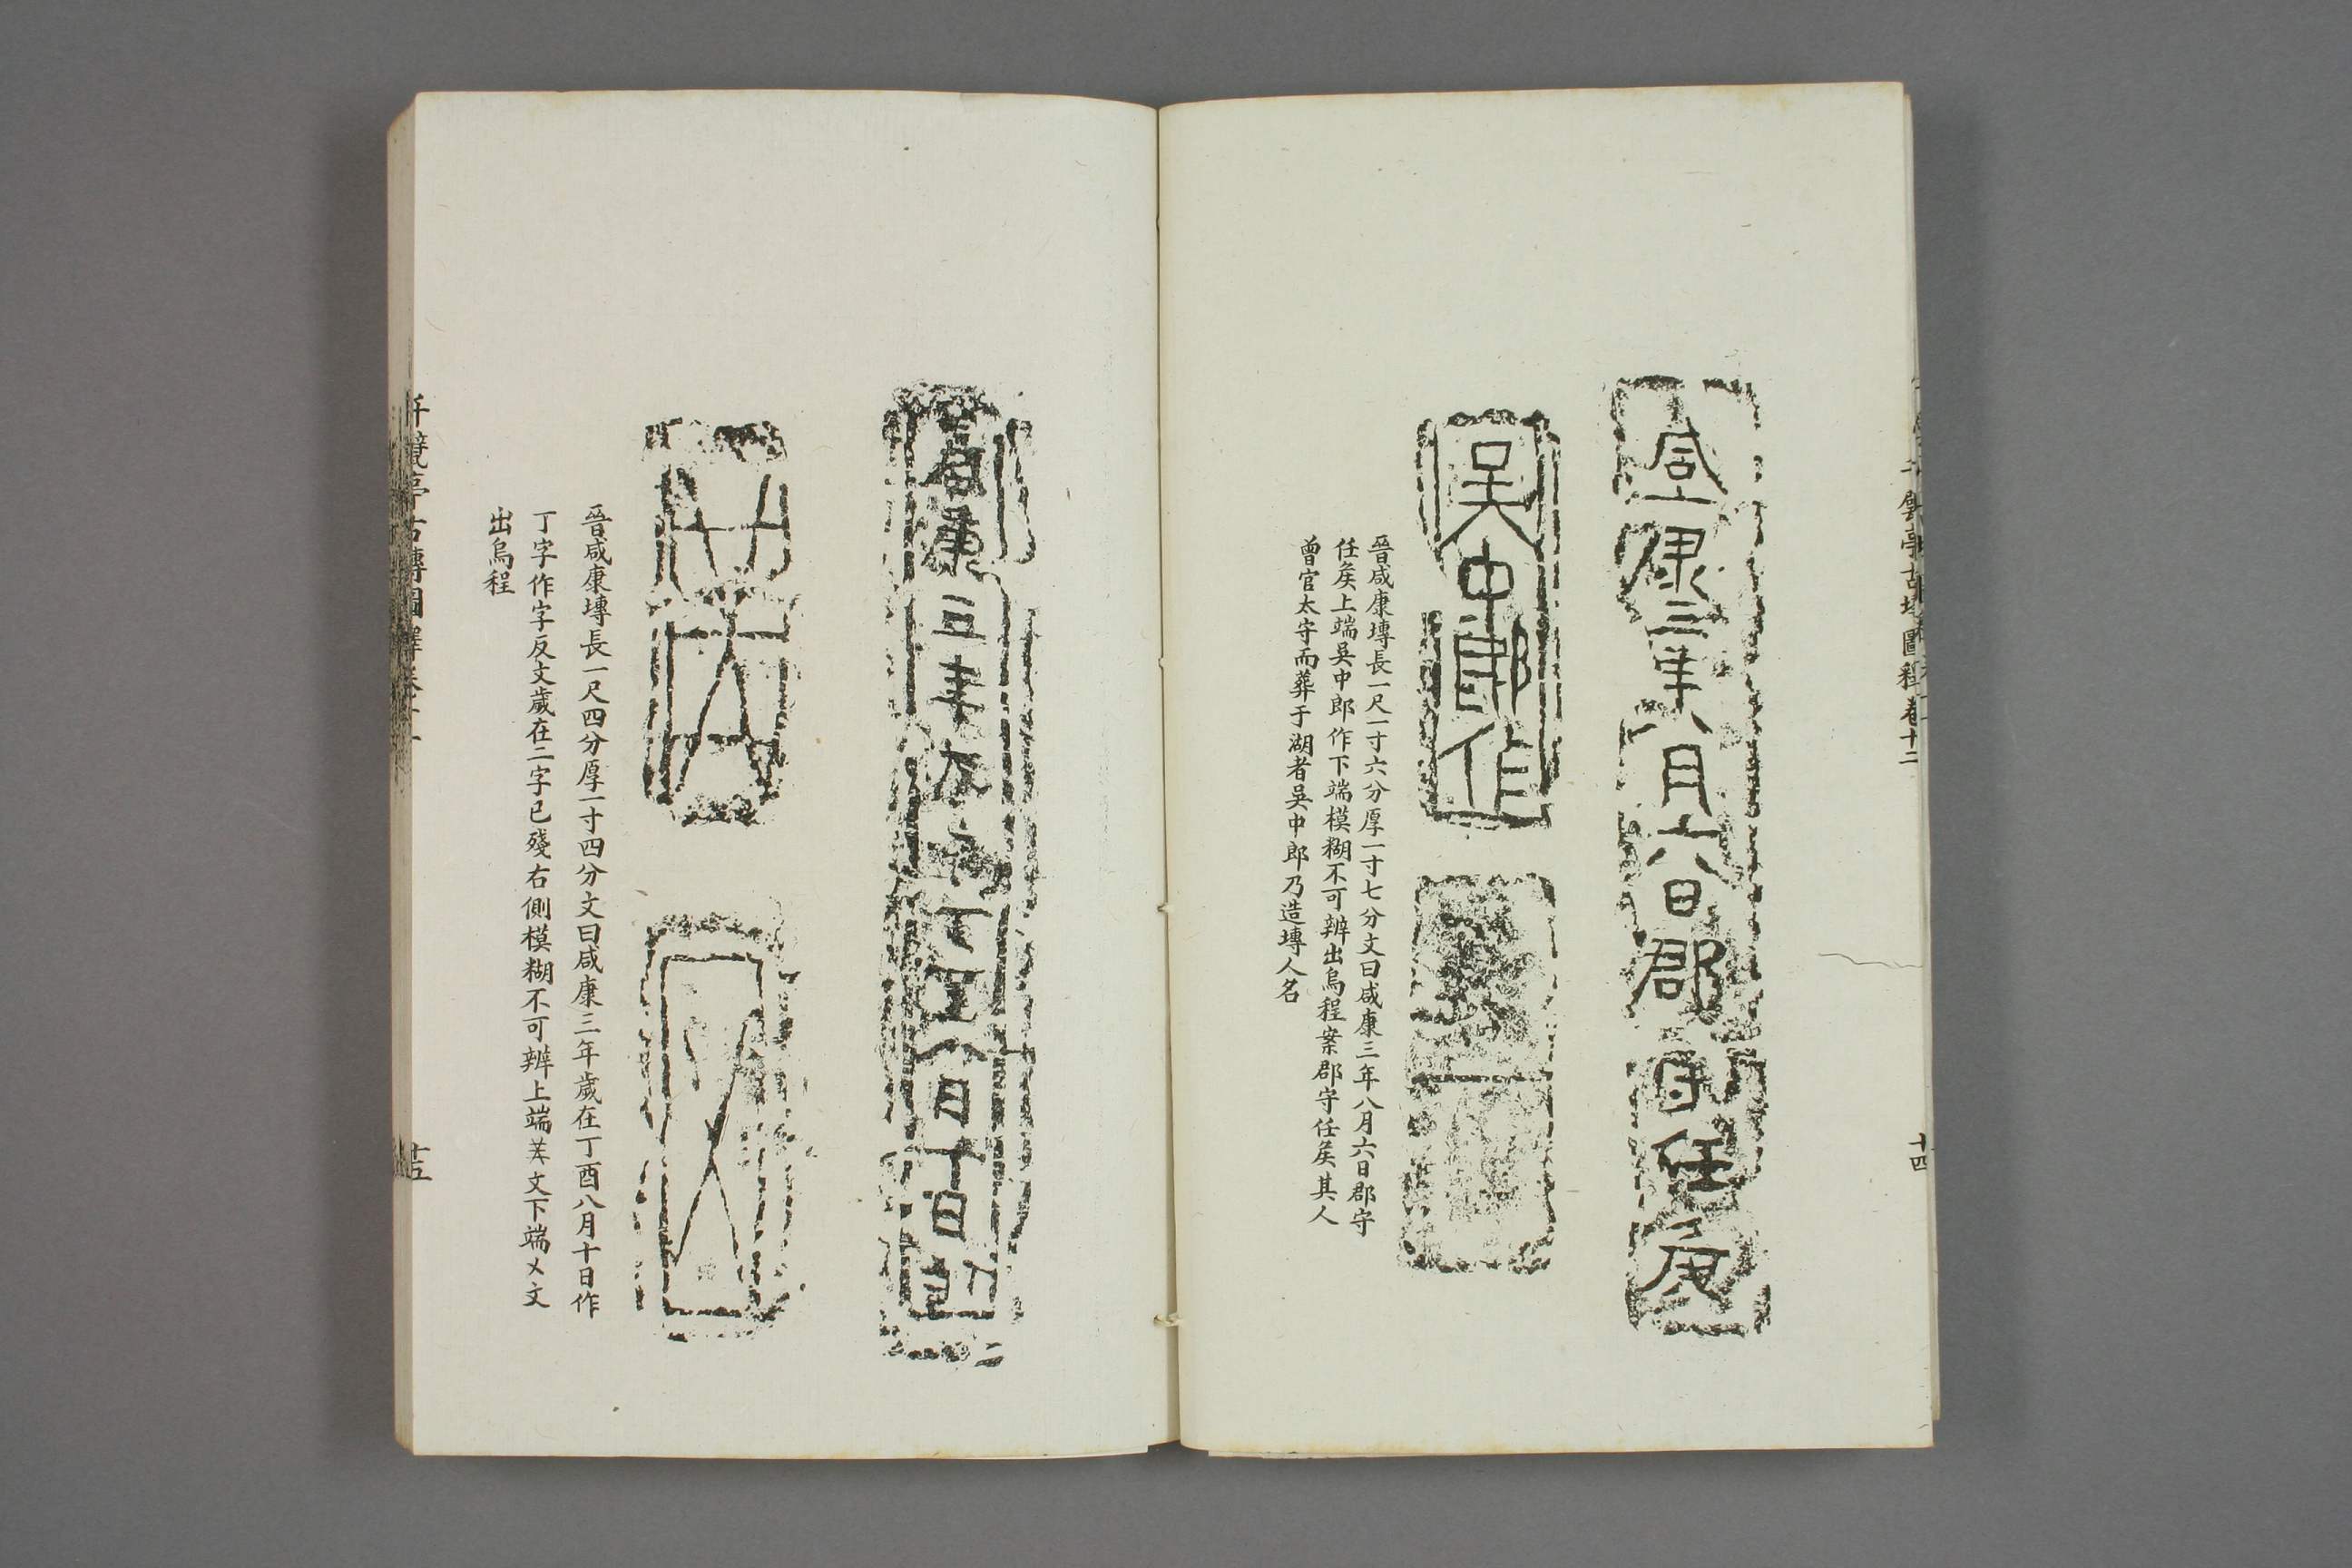 千甓亭古塼圖釋卷十二
十四
咸康三年八月六日郡守任矦
吳中郎作
晉咸康塼長一尺一寸六分厚一寸七分文曰咸康三年八月六日郡守
任矦上端吳中郎作下端模糊不可辨出烏程案郡守任矦其人
曾官太守而葬于湖者吳中郎乃造塼人名
咸康三年歲在丁酉八月十日作
晉咸康塼長一尺四分厚一寸四分文曰咸康三年歲在丁酉八月十日作
丁字作字反文歲在二字已殘右側模糊不可辨上端㐅文下端㐅文
出烏程
千甓亭古塼圖釋卷十二
十五